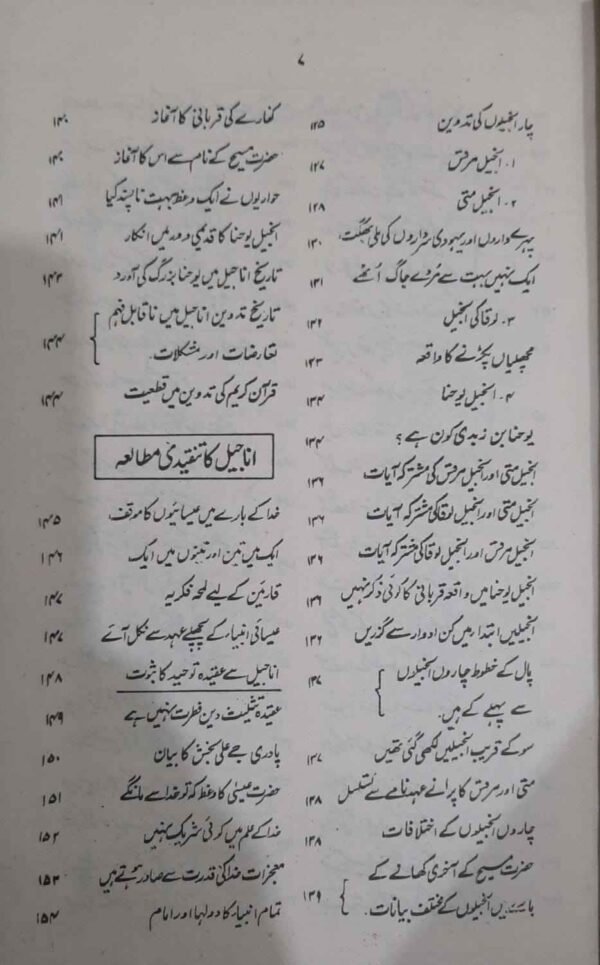 ۷
چار انجیلوں کی تدوین ۱۲۵
۱۔ انجیل مرقس ۱۲۷
۲۔ انجیل متی ۱۲۸
پہرے داروں اور یہودی سرداروں کی ملی بھگت ۱۳۰
ایک نہیں بہت سے مُردے جاگ اُٹھے ۱۳۱
۳۔ لوقا کی انجیل ۱۳۲
مچھلیاں پکڑنے کا واقعہ ۱۳۳
۴۔ انجیل یوحنا ۱۳۴
یوحنا بن زبدی کون ہے؟ ۱۳۴
انجیل متی اور انجیل مرقس کی مشترکہ آیات ۱۳۶
انجیل متی اور انجیل لوقا کی مشترکہ آیات ۱۳۶
انجیل مرقس اور انجیل لوقا کی مشترکہ آیات ۱۳۶
انجیل یوحنا میں واقعہ قربانی کا کوئی ذکر نہیں ۱۳۶
انجیلیں ابتدار میں کن ادوار سے گذریں ۱۳۶
پال کے خطوط چاروں انجیلوں
سے پہلے کے ہیں۔ ۱۳۷
سو کے قریب انجیلیں لکھی گئی تھیں ۱۳۷
متی اور مرقس کا پرانے عہد نامے سے تسلسل ۱۳۸
چاروں انجیلوں کے اختلافات ۱۳۸
حضرت مسیح کے آخری کھانے کے
بارے میں انجیلوں کے مختلف بیانات۔ ۱۳۹
کفارے کی قربانی کا آغاز ۱۴۰
حضرت مسیح کے نام سے اس کا آغاز ۱۴۰
حواریوں نے ایک وعظ بہت ناپسند کیا ۱۴۱
انجیل یوحنا کا قدیمی دور میں انکار ۱۴۱
تاریخ اناجیل میں یوحنا بزرگ کی آورد ۱۴۳
تاریخ تدوین اناجیل میں ناقابل فہم
تعارضات اور مشکلات۔ ۱۴۴
قرآن کریم کی تدوین میں قطعیت ۱۴۴
اناجیل کا تنقیدی مطالعہ
خدا کے بارے میں عیسائیوں کا موقف ۱۴۵
ایک میں تین اور تینوں میں ایک ۱۴۶
قارئین کے لیے لمحہ فکریہ ۱۴۷
عیسائی انبیاء کے پچھلے عہد سے نکل آئے ۱۴۷
اناجیل سے عقیدہ توحید کا ثبوت ۱۴۸
عقیدہ تثلیث دین فطرت نہیں ہے ۱۴۹
پادری جے علی بخش کا بیان ۱۵۰
حضرت عیسیٰ کا وعظ کہ تو خدا سے مانگے ۱۵۱
خدا کے علم میں کوئی شریک نہیں ۱۵۲
معجزات خدا کی قدرت سے صادر ہوتے ہیں ۱۵۳
تمام انبیار کا دولہا اور امام ۱۵۴